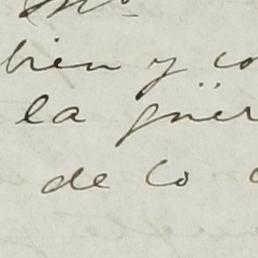 bien y co
la güer
de lo